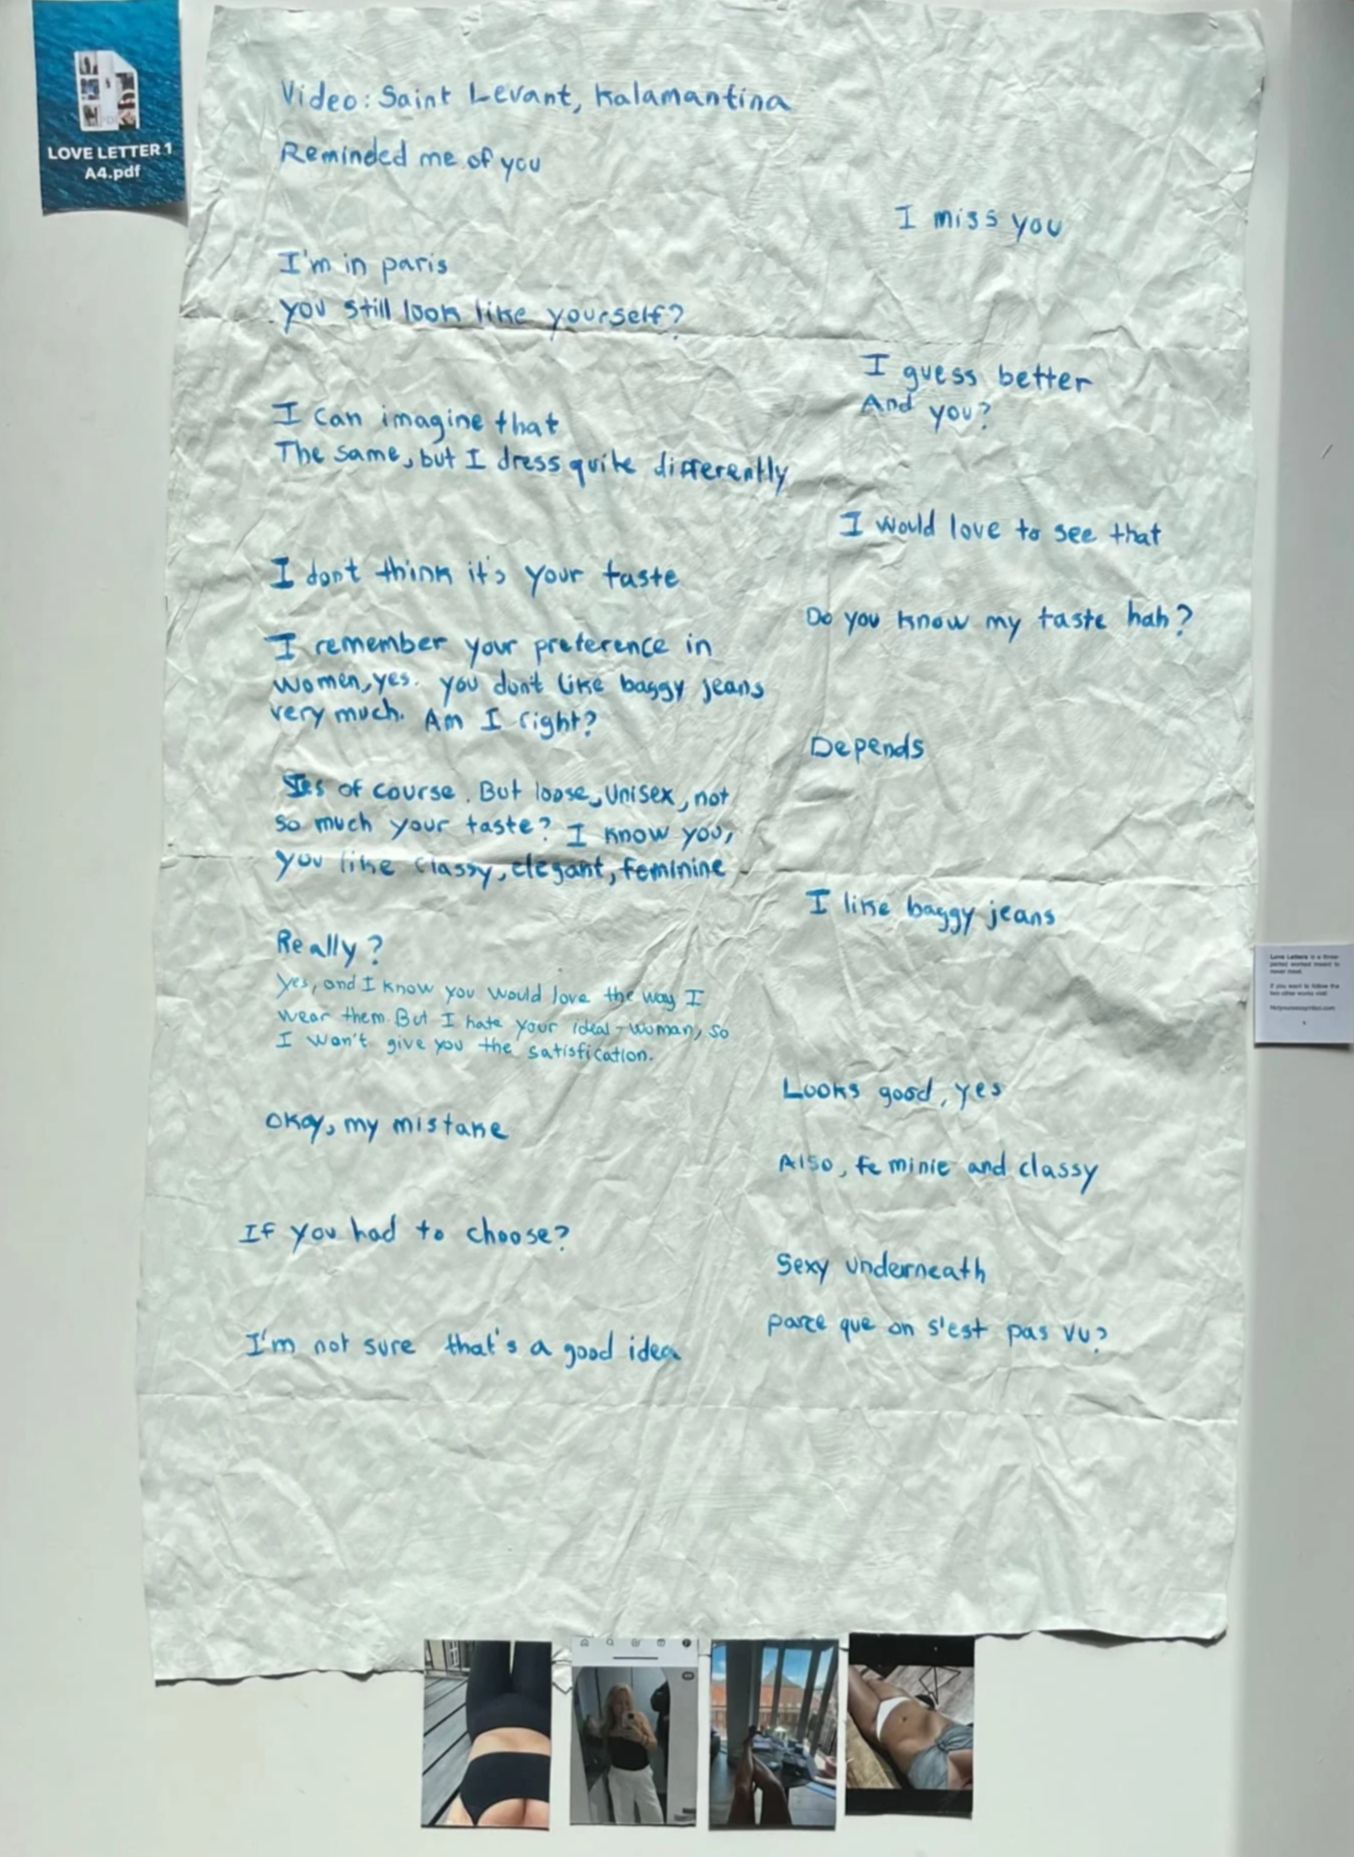 LOVE LETTER 1
A4.pdf
Video: Saint Levant, Kalamantina
Reminded me of you
I miss you
I'm in paris
you still look like yourself?
I guess better
And you?
I can imagine that
The same, but I dress quite differently
I would love to see that
I don't think it's your taste
Do you know my taste hah?
I remember your preference in
women, yes. you don't like baggy jeans
very much. Am I right?
Depends
Yes of course. But loose, unisex, not
so much your taste? I know you,
you like classy, elegant, feminine
I like baggy jeans
Really?
yes, and I know you would love the way I
wear them. But I hate your ideal-woman, so
I won't give you the satisfication.
Looks good, yes
Okay, my mistake
Also, feminie and classy
If you had to choose?
Sexy underneath
parce que on s'est pas vu?
I'm not sure that's a good idea
Love Letters is a three-
parted worked meant to
never meet.
If you want to follow the
two other works visit